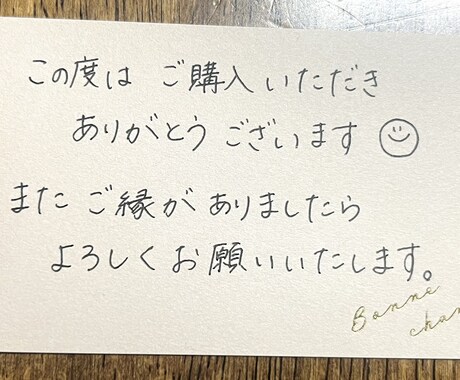 この度は ご購入いただき
ありがとうございます
また ご縁がありましたら
よろしくお願いいたします。
Bonne